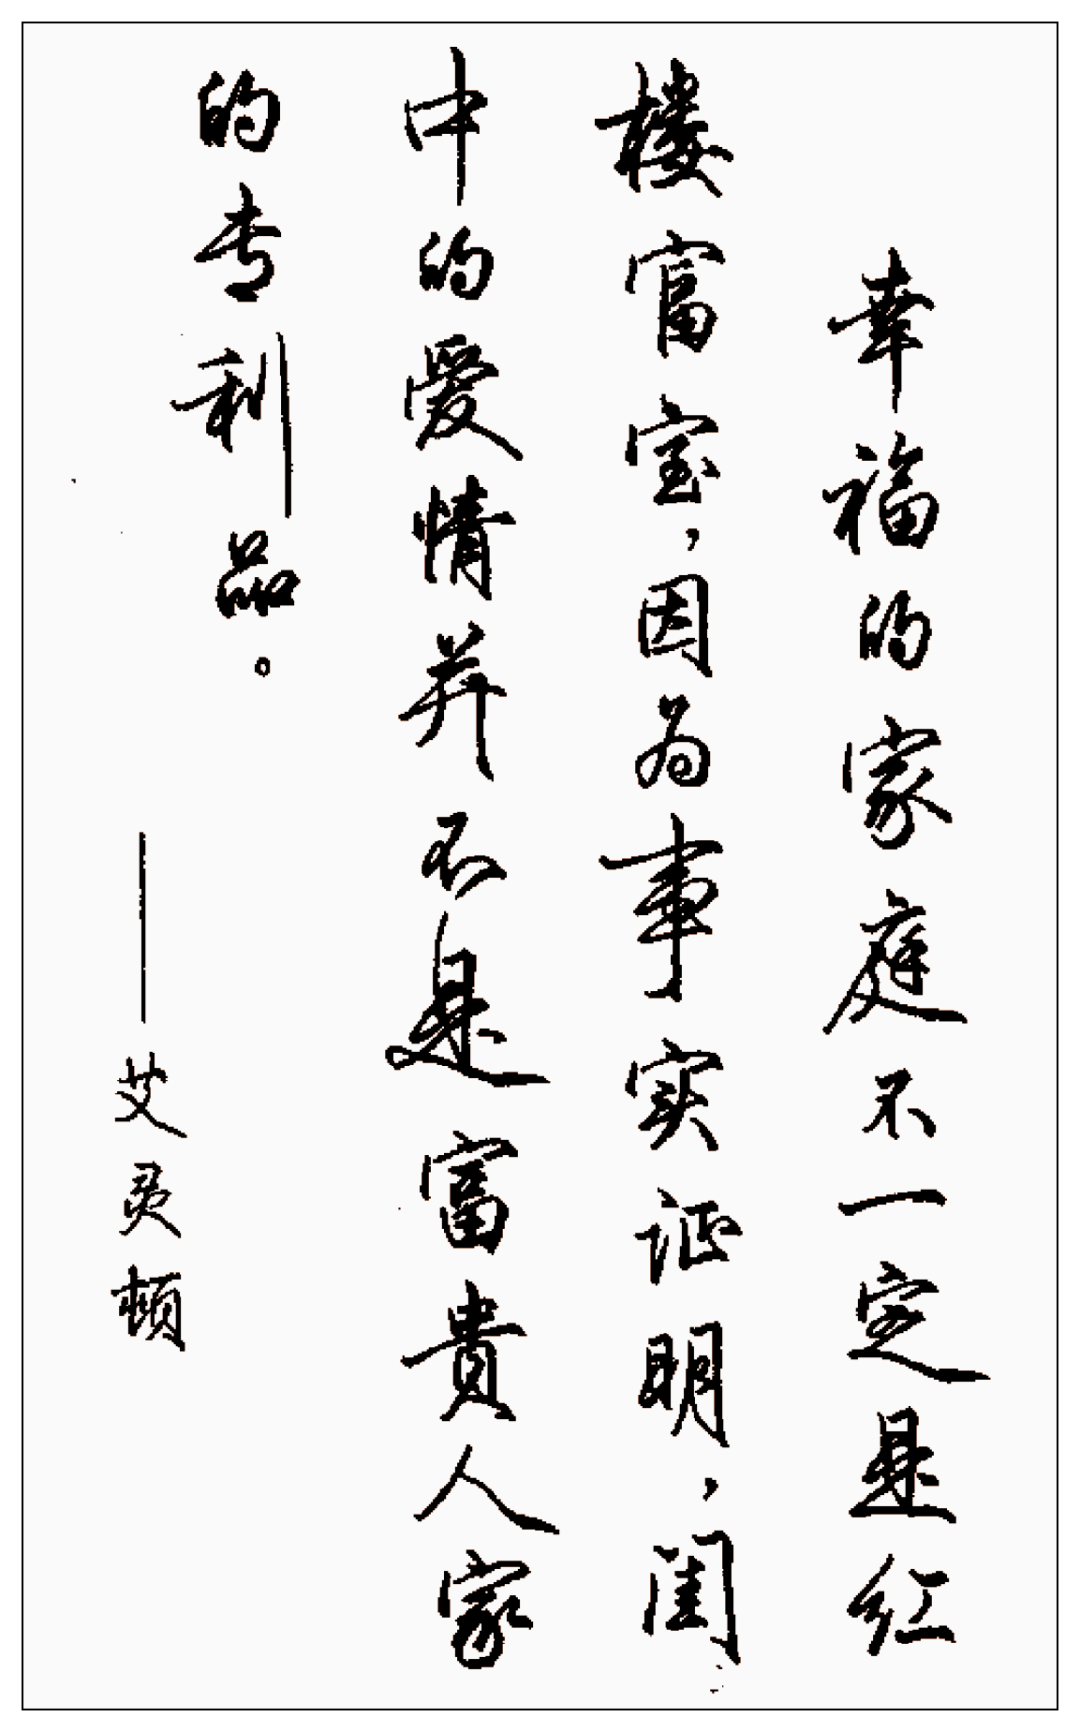 幸福的家庭不一定是红
楼富室,因为事实证明,闺
中的爱情并不是富貴人家
的专利品。
——艾灵顿